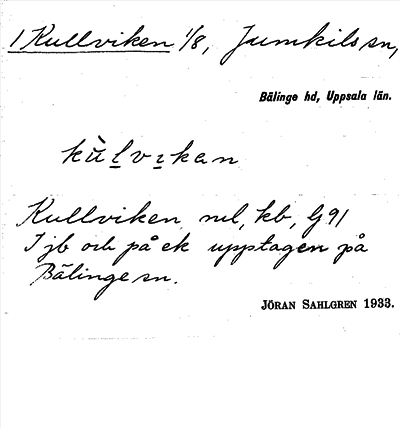 1 Kullviken 1/8, Jumkils sn,
Bälinge hd, Uppsala län.
kùlvıkan
Kullviken nul, kb, G 91
I jb och på ek upptagen på
Bälinge sn.
JÖRAN SAHLGREN 1933.